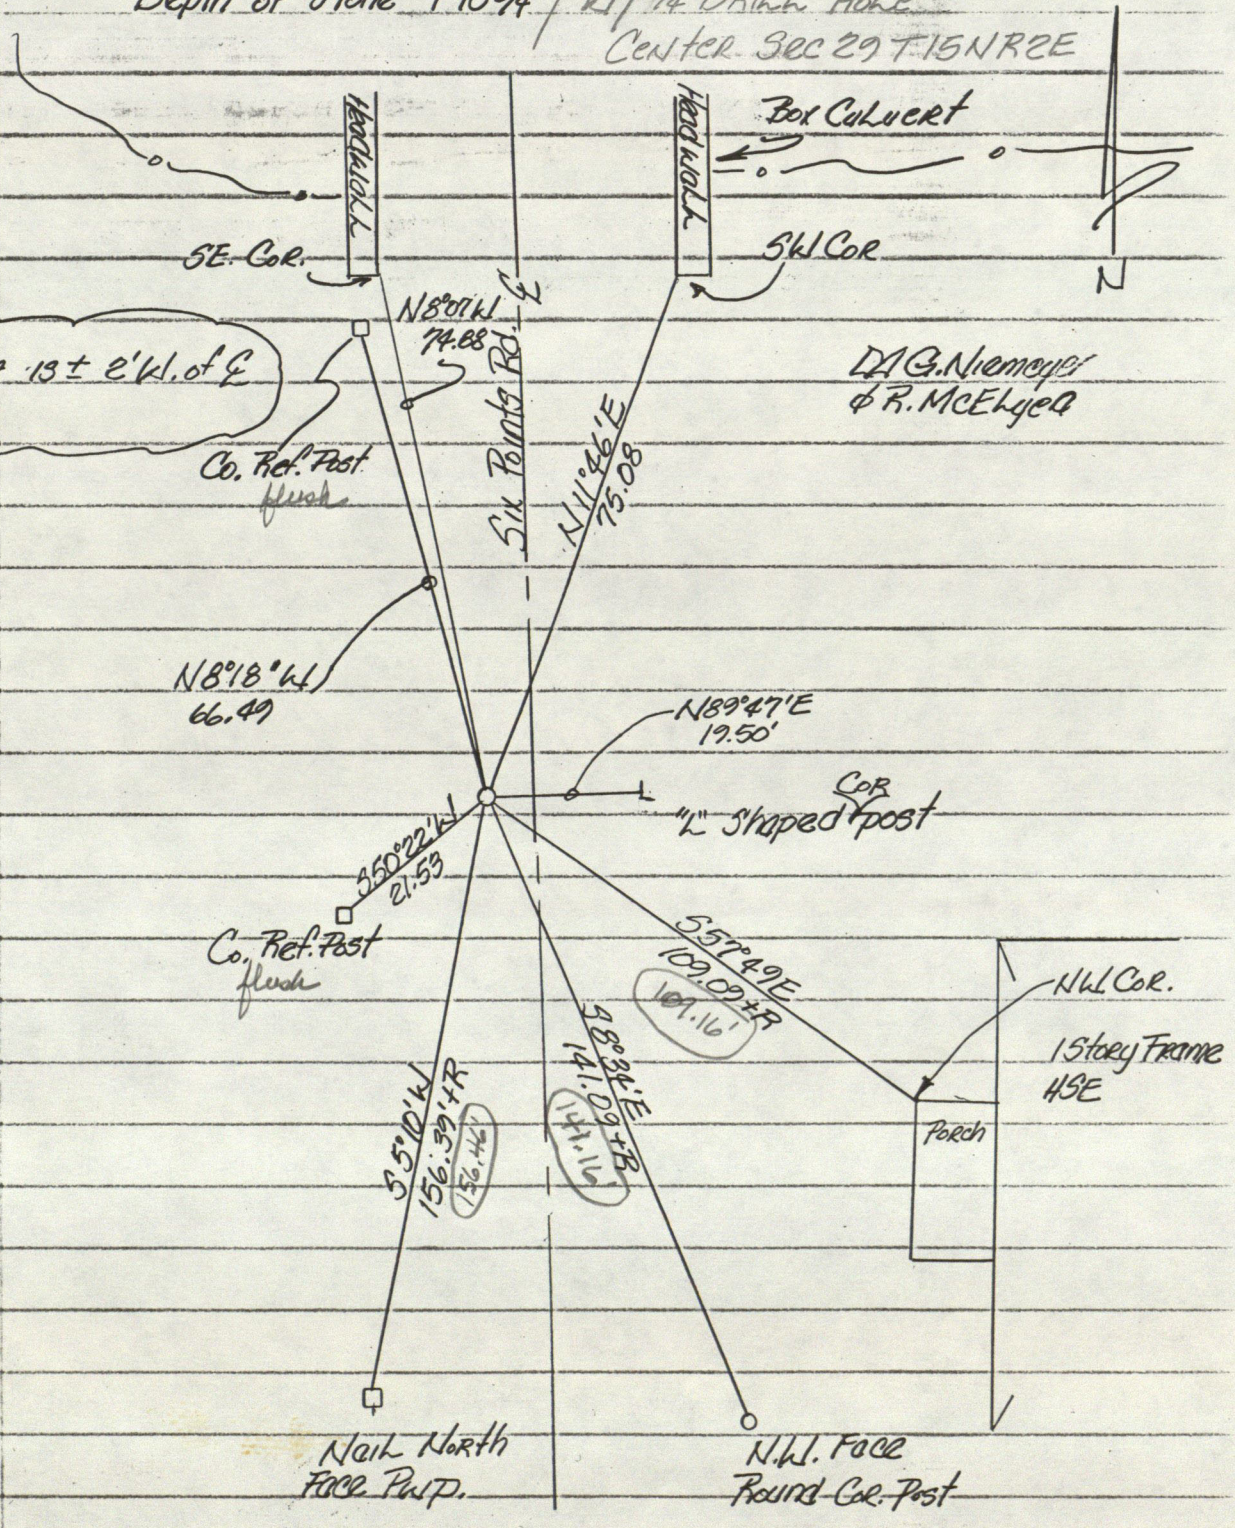 Depth of Stone
Center Sec 29 T15N R2E
Headwall
Headwall
Box Culvert
SE. Cor.
SW Cor
N
N8°07'W
74.88
is ± 2'W. of ℄
Six Points Rd. ℄
G. Niemeyer
& R. McElyea
Co. Ref. Post
flush
N11°46'E
75.08
N8°18'W
66.49
N89°47'E
19.50'
Cor
"L" Shaped post
S50°22'W
21.53
Co. Ref. Post
flush
S57°49'E
109.09+R
109.16'
NW. Cor.
1 Story Frame
HSE
Porch
S5°10'W
156.39'+R
156.46'
S8°34'E
141.09+R
141.16'
Nail North
Face Pwp.
N.W. Face
Round Cor. Post